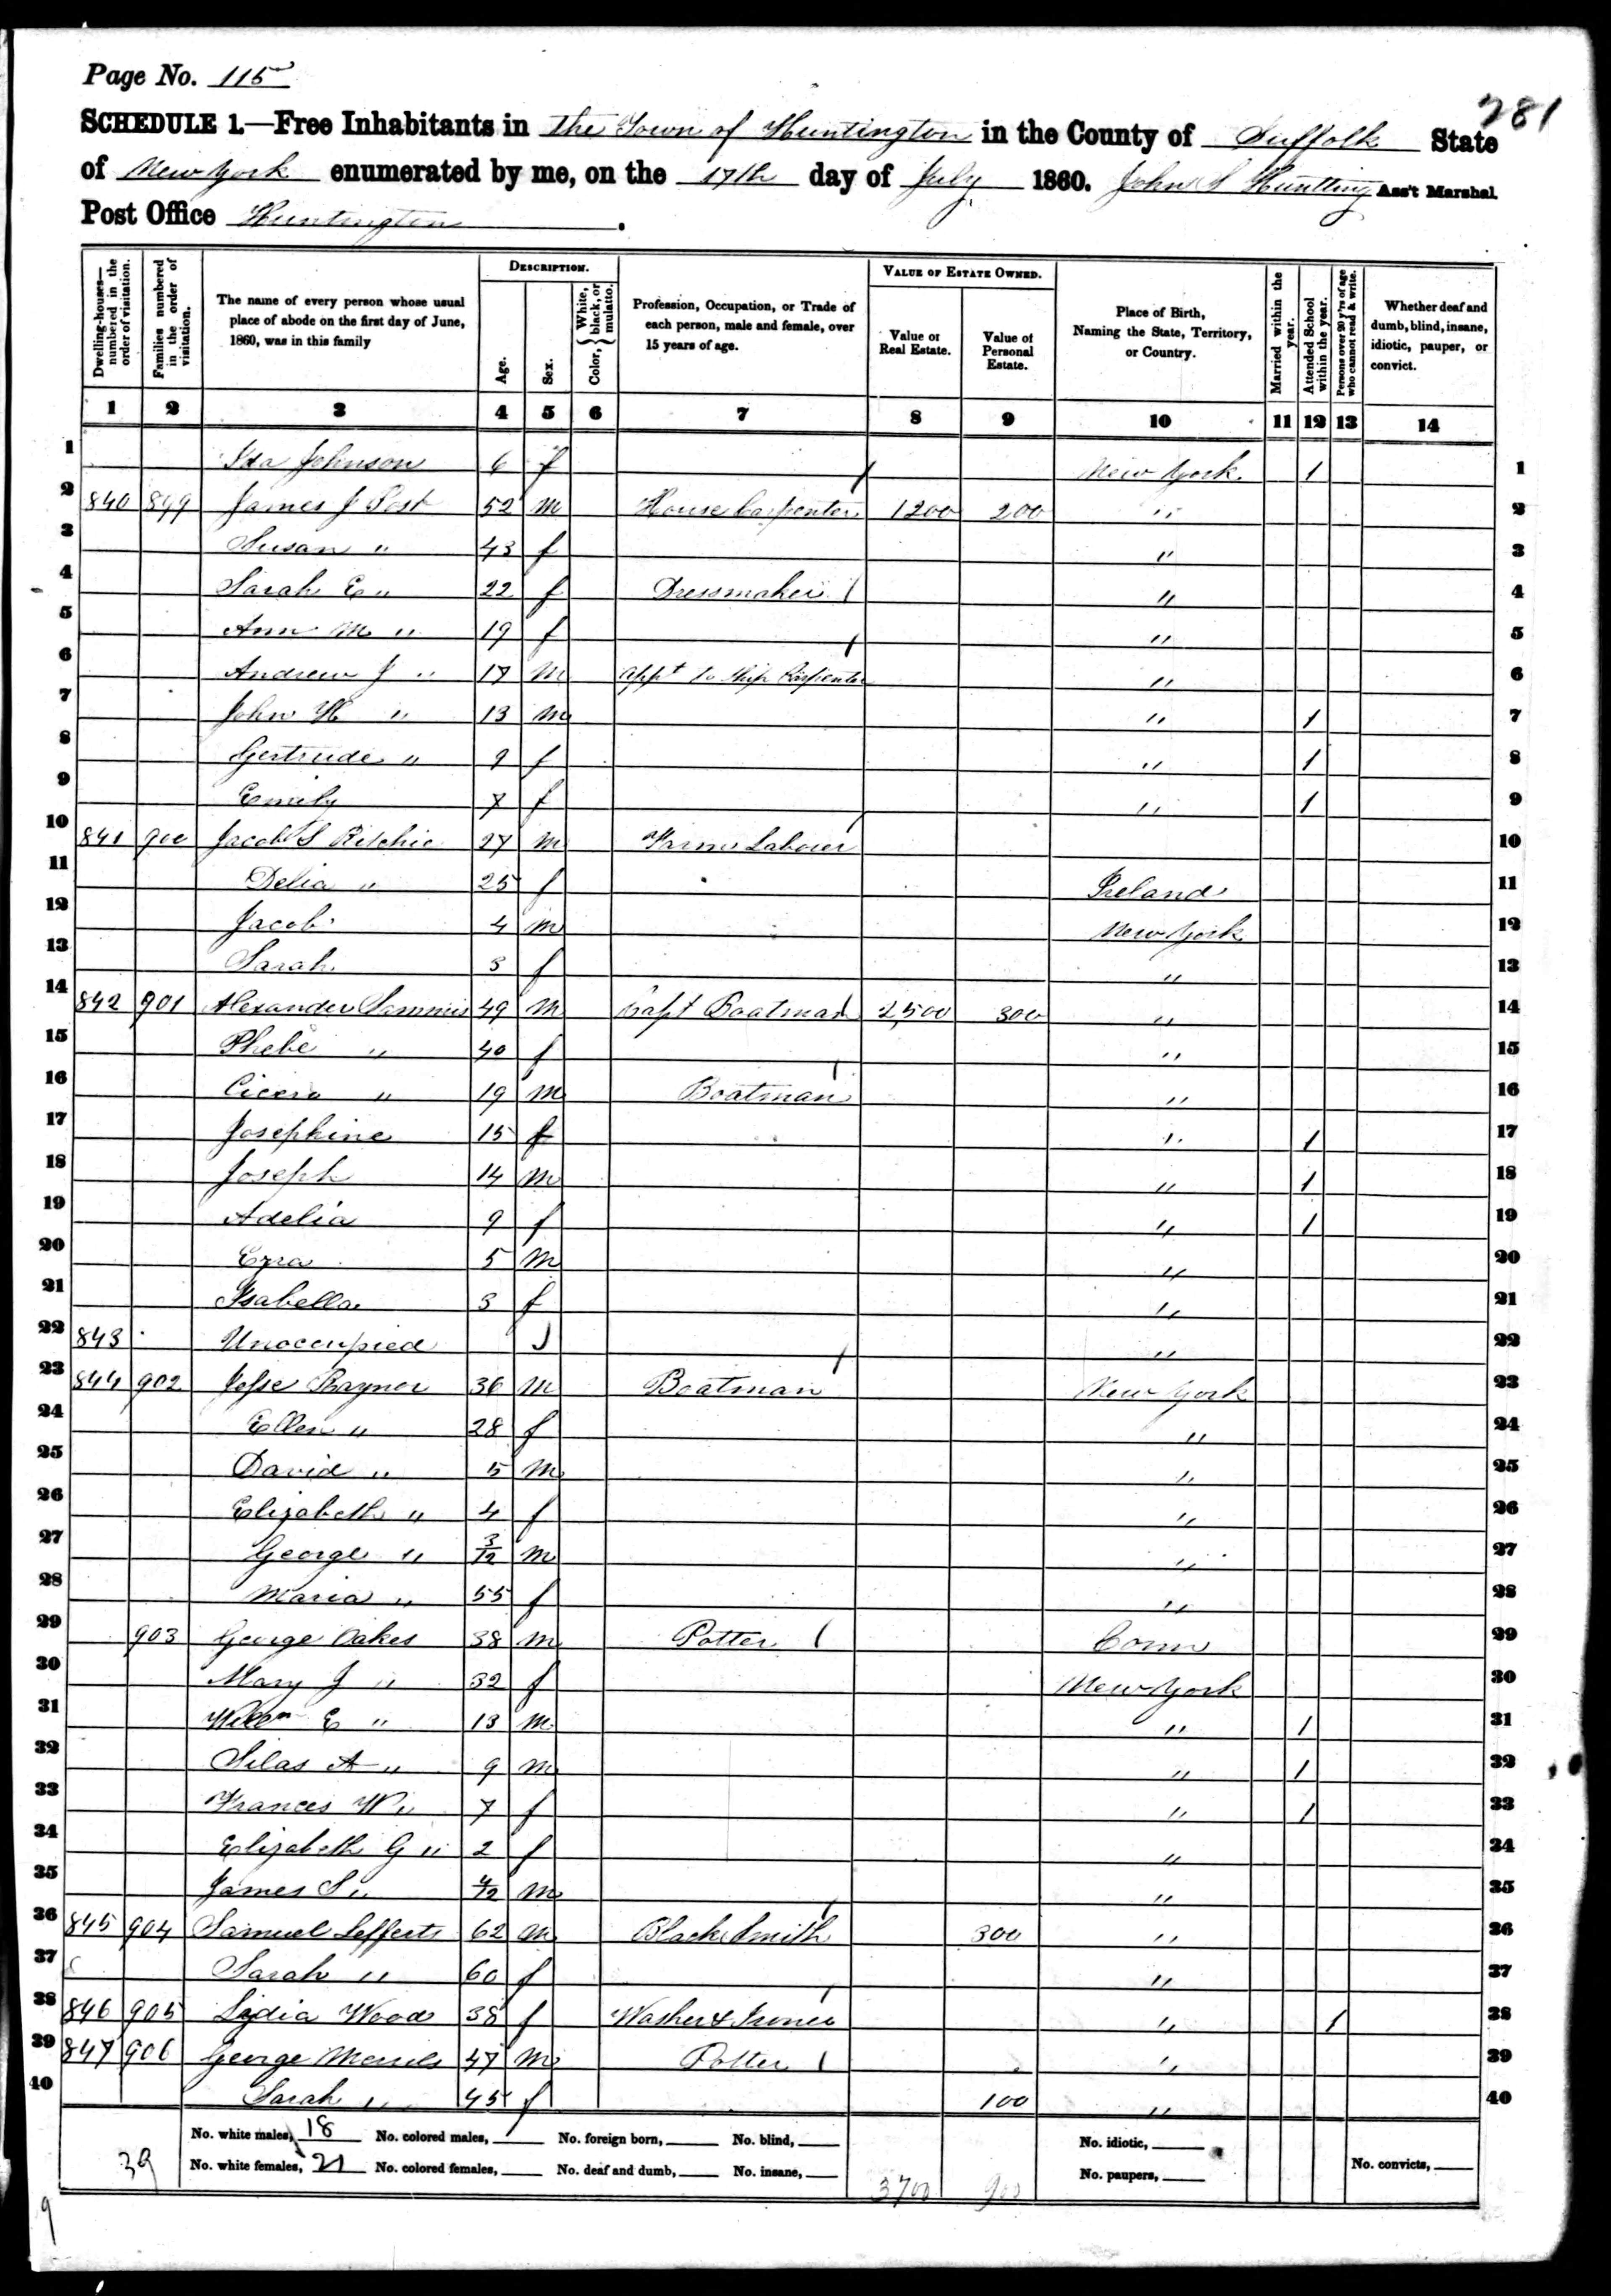 Page No. 115
281
SCHEDULE 1.—Free Inhabitants in the Town of Huntington in the County of Suffolk State
of New York enumerated by me, on the 17th day of July 1860. John S Huntting Ass't Marshal.
Post Office Huntington.
Dwelling-houses—numbered in the order of visitation.
Families numbered in the order of visitation.
The name of every person whose usual place of abode on the first day of June, 1860, was in this family
DESCRIPTION.
Age.
Sex.
Color, { White, black, or mulatto.
Profession, Occupation, or Trade of each person, male and female, over 15 years of age.
VALUE OF ESTATE OWNED.
Value of Real Estate.
Value of Personal Estate.
Place of Birth, Naming the State, Territory, or Country.
Married within the year.
Attended School within the year.
Persons over 20 y'rs of age who cannot read & write.
Whether deaf and dumb, blind, insane, idiotic, pauper, or convict.
1 2 3 4 5 6 7 8 9 10 11 12 13 14
1 Ida Johnson 6 f New York 1 1
2 840 899 James J Post 52 m House Carpenter 1200 200 " 2
3 Susan " 43 f " 3
4 Sarah E " 22 f Dressmaker " 4
5 Ann M " 19 f " 5
6 Andrew J " 17 m appt to Ship Carpenter " 6
7 John H " 13 m " 1 7
8 Gertrude " 9 f " 1 8
9 Emily 7 f " 1 9
10 841 900 Jacob S Ritchie 27 m Farm Laborer 10
11 Delia " 25 f Ireland 11
12 Jacob 4 m New York 12
13 Sarah 3 f " 13
14 842 901 Alexander Sammis 49 m Capt Boatman 2,500 300 " 14
15 Phebe " 40 f " 15
16 Cicero " 19 m Boatman " 16
17 Josephine 15 f " 1 17
18 Joseph 14 m " 1 18
19 Adelia 9 f " 1 19
20 Ezra 5 m " 20
21 Isabella 3 f " 21
22 843 Unoccupied " 22
23 844 902 Jesse Raynor 36 m Boatman New York 23
24 Ellen " 28 f " 24
25 David " 5 m " 25
26 Elizabeth " 4 f " 26
27 George " 3/12 m " 27
28 Maria " 55 f " 28
29 903 George Oakes 38 m Potter Conn 29
30 Mary J " 32 f New York 30
31 Willm E " 13 m " 1 31
32 Silas A " 9 m " 1 32
33 Frances W " 7 f " 1 33
34 Elizabeth G " 2 f " 34
35 James S " 4/12 m " 35
36 845 904 Samuel Lefferts 62 m Black Smith 300 " 36
37 Sarah " 60 f " 37
38 846 905 Lydia Wood 38 f Washer & Ironer " 1 38
39 847 906 George 47 m Potter " 39
40 Sarah " 45 f 100 " 40
39
No. white males, 18 No. colored males, No. foreign born, No. blind, No. idiotic,
No. white females, 21 No. colored females, No. deaf and dumb, No. insane, No. paupers, No. convicts,
3700 900
9